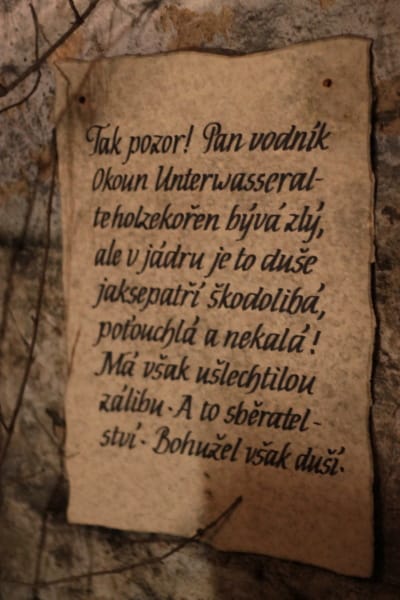 Tak pozor! Pan vodník
Okoun Unterwasseral-
teholzekořen bývá zlý,
ale v jádru je to duše
jaksepatří škodolibá,
poťouchlá a nekalá!
Má však ušlechtilou
zálibu · A to sběratel-
ství · Bohužel však duší·